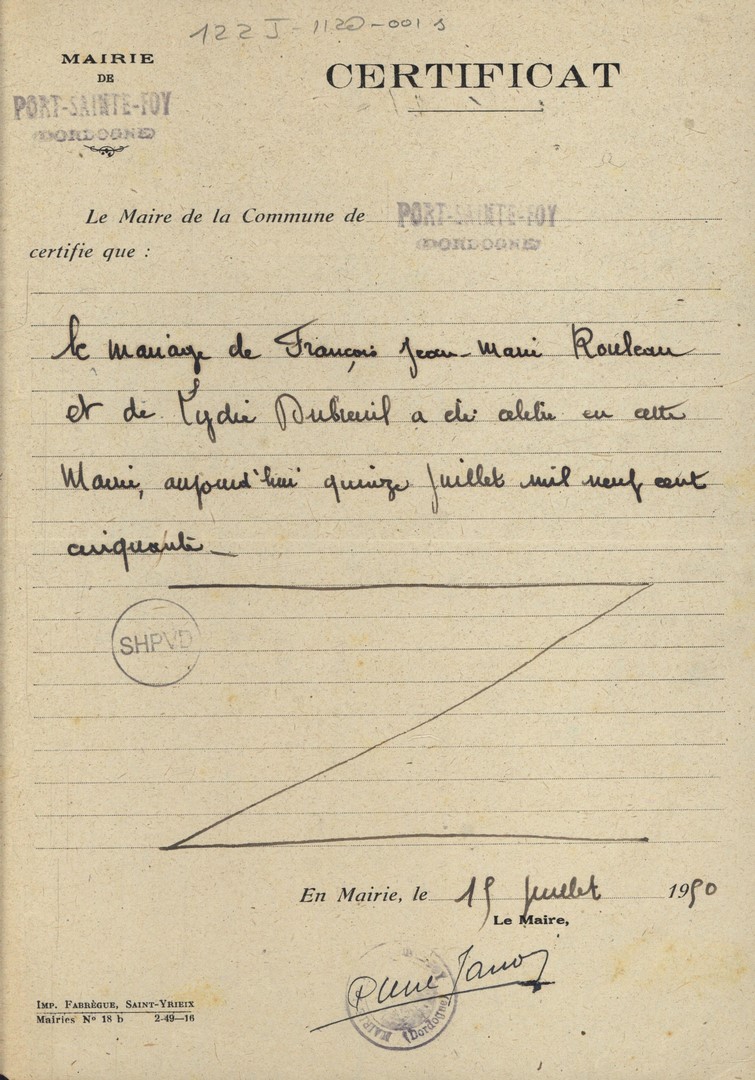 122 J-1120-001 s
MAIRIE
DE
PORT-SAINTE-FOY
(DORDOGNE)
CERTIFICAT
Le Maire de la Commune de PORT-SAINTE-FOY
(DORDOGNE)
certifie que :
le mariage de François Jean-Marie Rouleau
et de Lydie Dubreuil a été célébré en cette
Mairie, aujourd'hui quinze Juillet mil neuf cent
cinquante_
SHPVD
En Mairie, le 15 juillet 1950
Le Maire,
MAIRIE
(Dordogne)
IMP. FABRÈGUE, SAINT-YRIEIX
Mairies N° 18 b 2-49—16